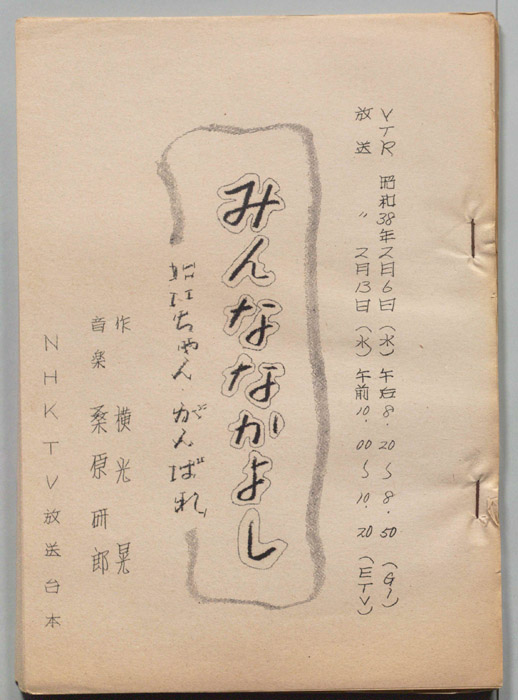 VTR 昭和38年2月6日(水)午后8.20〜8.50(G)
放送 〃 2月13日(水)午前10.00〜10.20(ETV)
みんななかよし
ちゃん がんばれ
作 横光 晃
音楽 桑原研郎
NHKTV放送台本